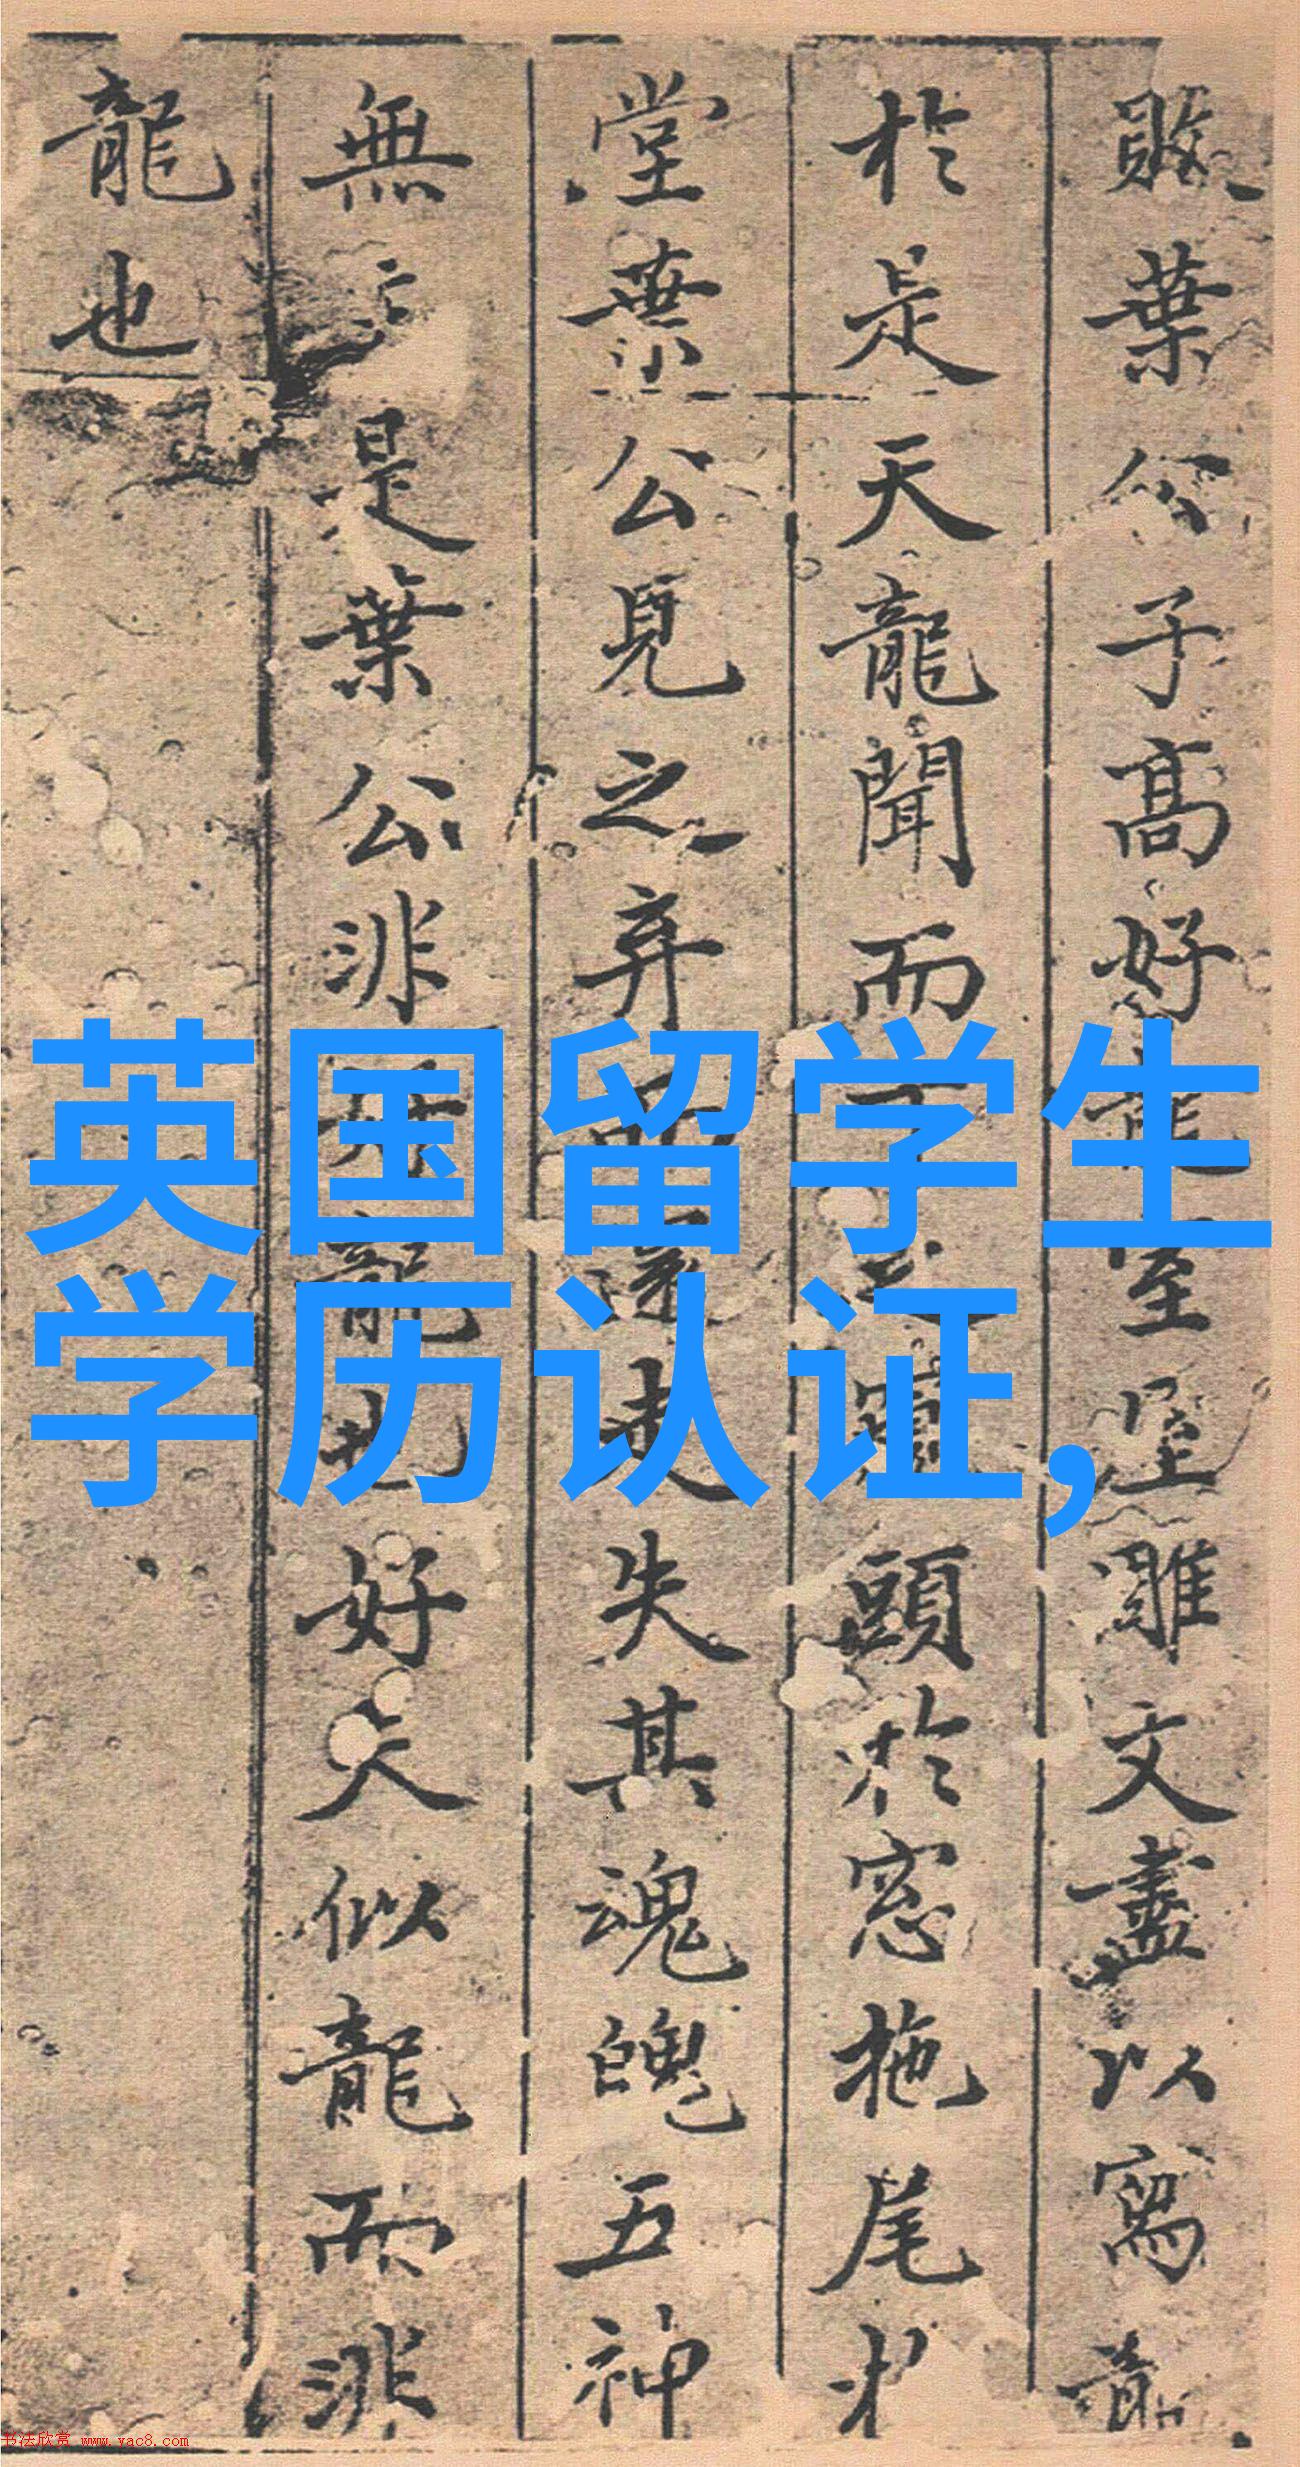 败葉公子高好龍室屋雕文盡以寫龍
於是天龍聞而下之窺頭於窓拖尾於
堂葉公見之弃而還走失其魂魄五神
無主是葉公非好龍也好夫似龍而非
龍也
英国留学生
学历认证,
书法欣赏 www.yac8.com